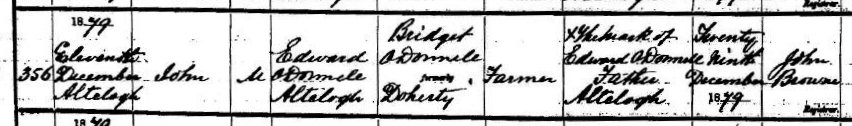 Registrar.
1879
356
Eleventh
December
Altelogh
John
M
Edward
O Donnele
Altelogh
Bridget
O Donnele
formerly
Doherty
Farmer
X The Mark of
Edward O Donnell
Father
Altelogh
Twenty
Ninth
December
1879
John
Browne
Registrar.
1879